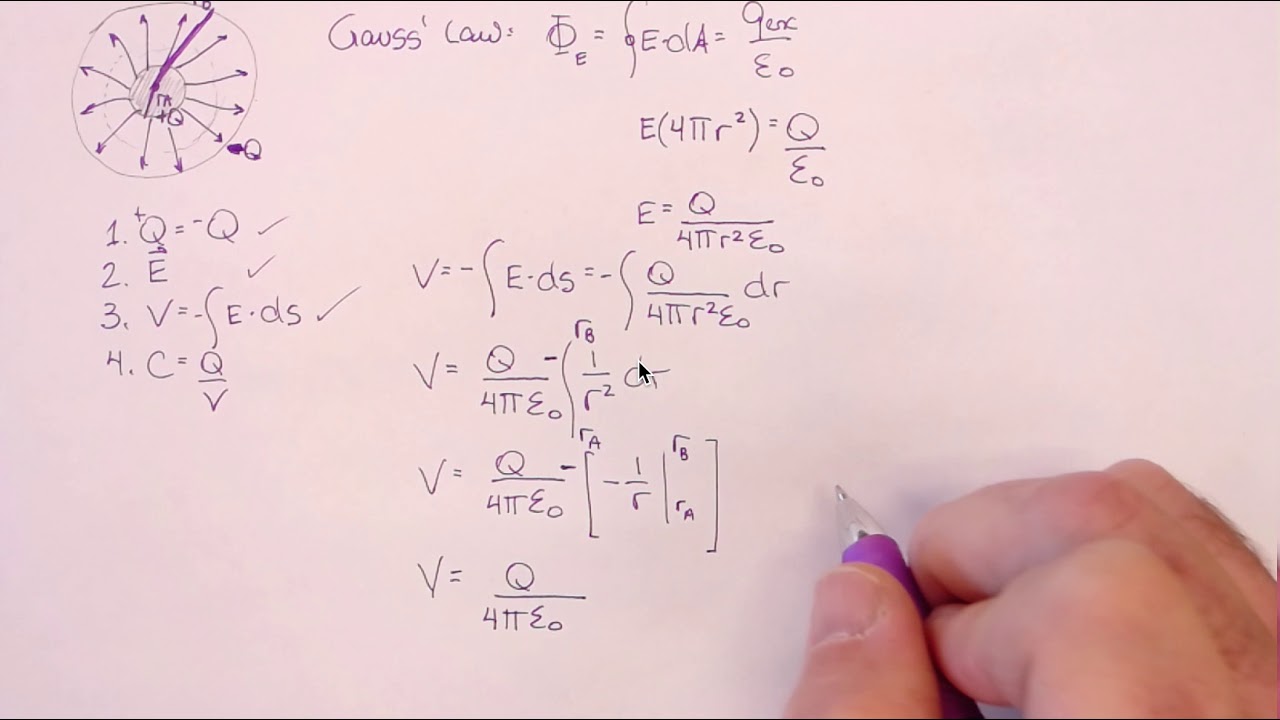 Gauss' Law: Φ_E = ∮E·dA = q_enc/ε₀
r_B
r_A
+Q
-Q
E(4πr²) = Q/ε₀
E = Q/4πr²ε₀
1. +Q = -Q ✓
2. E⃗ ✓
3. V = -∫E·ds ✓
4. C = Q/V
V = -∫E·ds = -∫ Q/4πr²ε₀ dr
V = Q/4πε₀ -∫_{r_A}^{r_B} 1/r² dr
V = Q/4πε₀ -[-1/r |_{r_A}^{r_B}]
V = Q/4πε₀